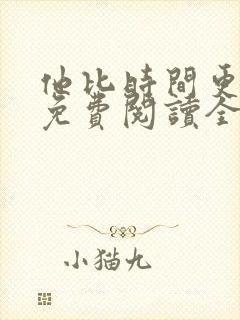 他比時間更
免費閱讀全
小猫九